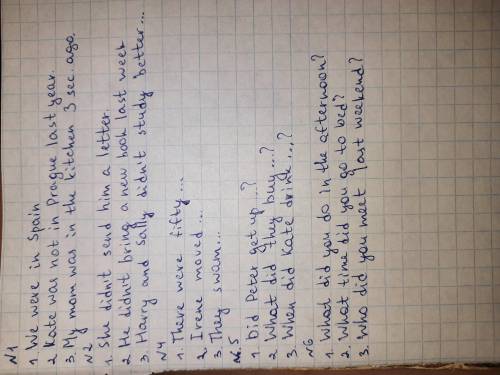 N1
1. We were in Spain
2. Kate was not in Prague last year.
3. My mom was in the kitchen 3 sec. ago.
N2
1. She didn't send him a letter.
2. He didn't bring a new book last week
3. Harry and Sally didn't study better...
N4
1. There were fifty...
2. Irene moved...
3. They swam...
N.5
1. Did Peter get up...?
2. What did they buy...?
3. When did Kate drink...?
N6
1. What did you do in the afternoon?
2. What time did you go to bed?
3. Who did you meet last weekend?